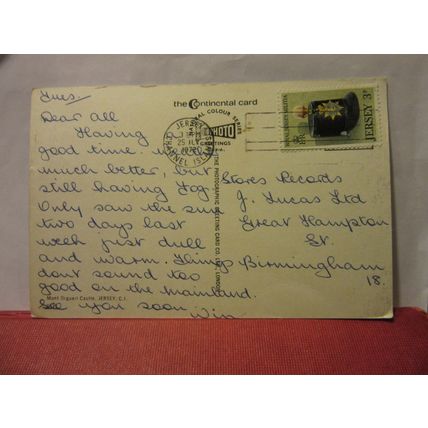 Tues.
Dear All
Having
good time.
much better, but
still having fog.
Only saw the sun
two days last
week just dull
and warm. Things
dont sound too
good on the mainland.
See you soon
Win
Mont Orgueil Castle, JERSEY, C.I.
the Continental card
COLOUR SERIES
PHOTO
GREETINGS
THE PHOTOGRAPHIC GREETING CARD CO. LTD., LONDON
JERSEY
CHANNEL ISLANDS
JERSEY 3p
Stores Records
J. Lucas Ltd
Great Hampton
St.
Birmingham
18.